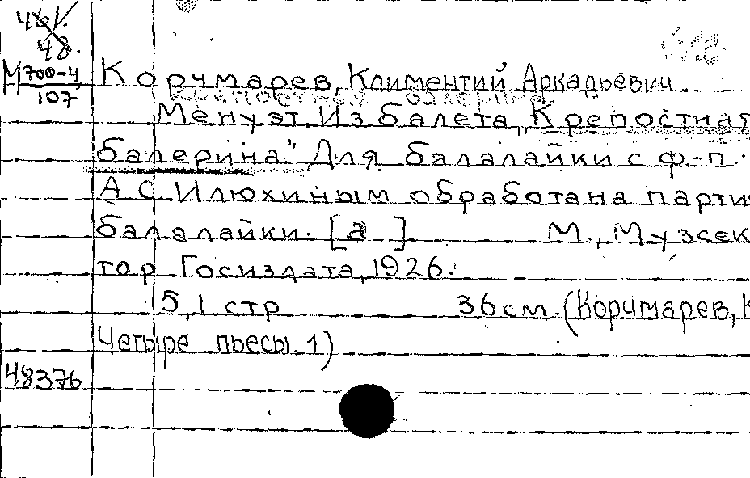 48.
М700-4
107
Корчмарев, Климентий Аркадьевич
Менуэт. Из балета „Крепостная
балерина". Для балалайки с ф-п.
А. С. Илюхиным обработана парти
балалайки. [а ] М., Музсек
тор Госиздата, 1926.
5,1 стр 36 см (Корчмарев, К
Четыре пьесы. 1)
48376